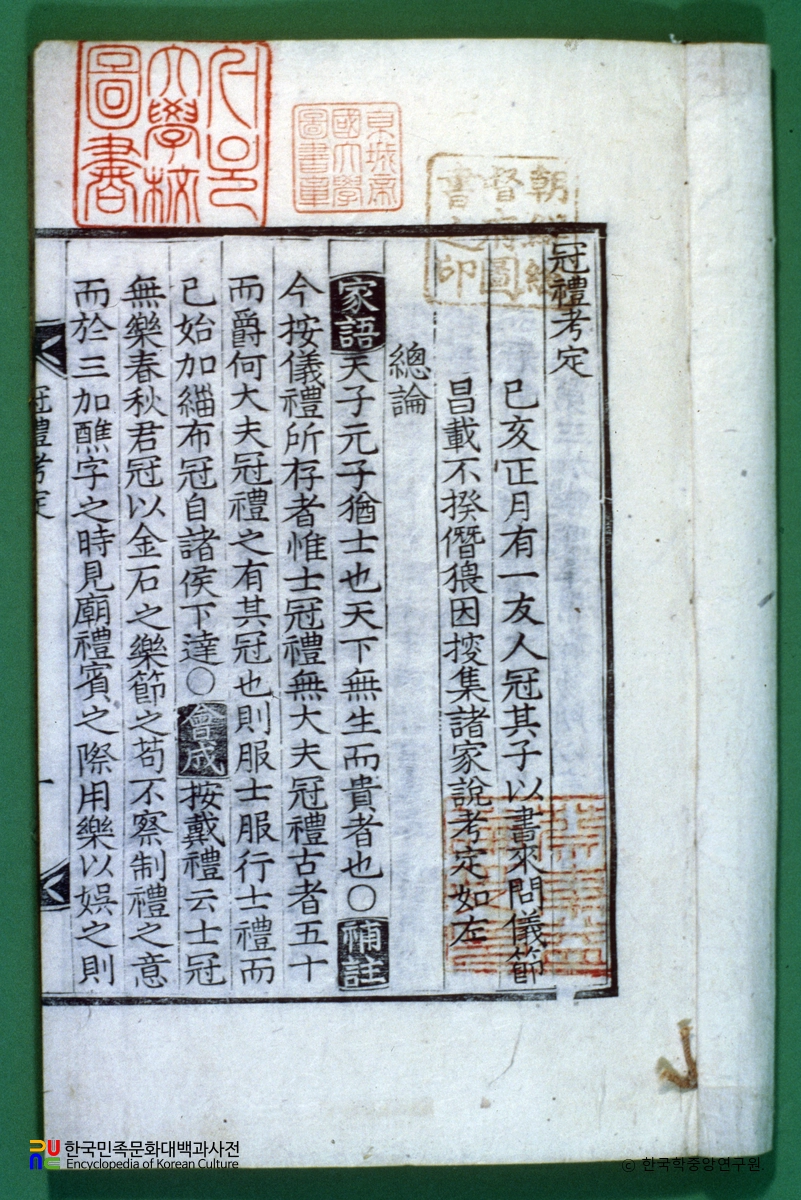 冠禮考定
已亥正月有一友人冠其子以書來問儀節
昌載不揆僭猥因搜集諸家說考定如左
總論
家語天子元子猶士也天下無生而貴者也○補註
今按儀禮所存者惟士冠禮無大夫冠禮古者五十
而爵何大夫冠禮之有其冠也則服士服行士禮而
已始加緇布冠自諸侯下達○會成按戴禮云士冠
無樂春秋君冠以金石之樂節之苟不察制禮之意
而於三加醮字之時見廟禮賓之際用樂以娛之則
冠禮考定
一
朝鮮總
督府圖
書之印
大學校
圖書
京城帝
國大學
圖書章
한국민족문화대백과사전
Encyclopedia of Korean Culture
© 한국학중앙연구원